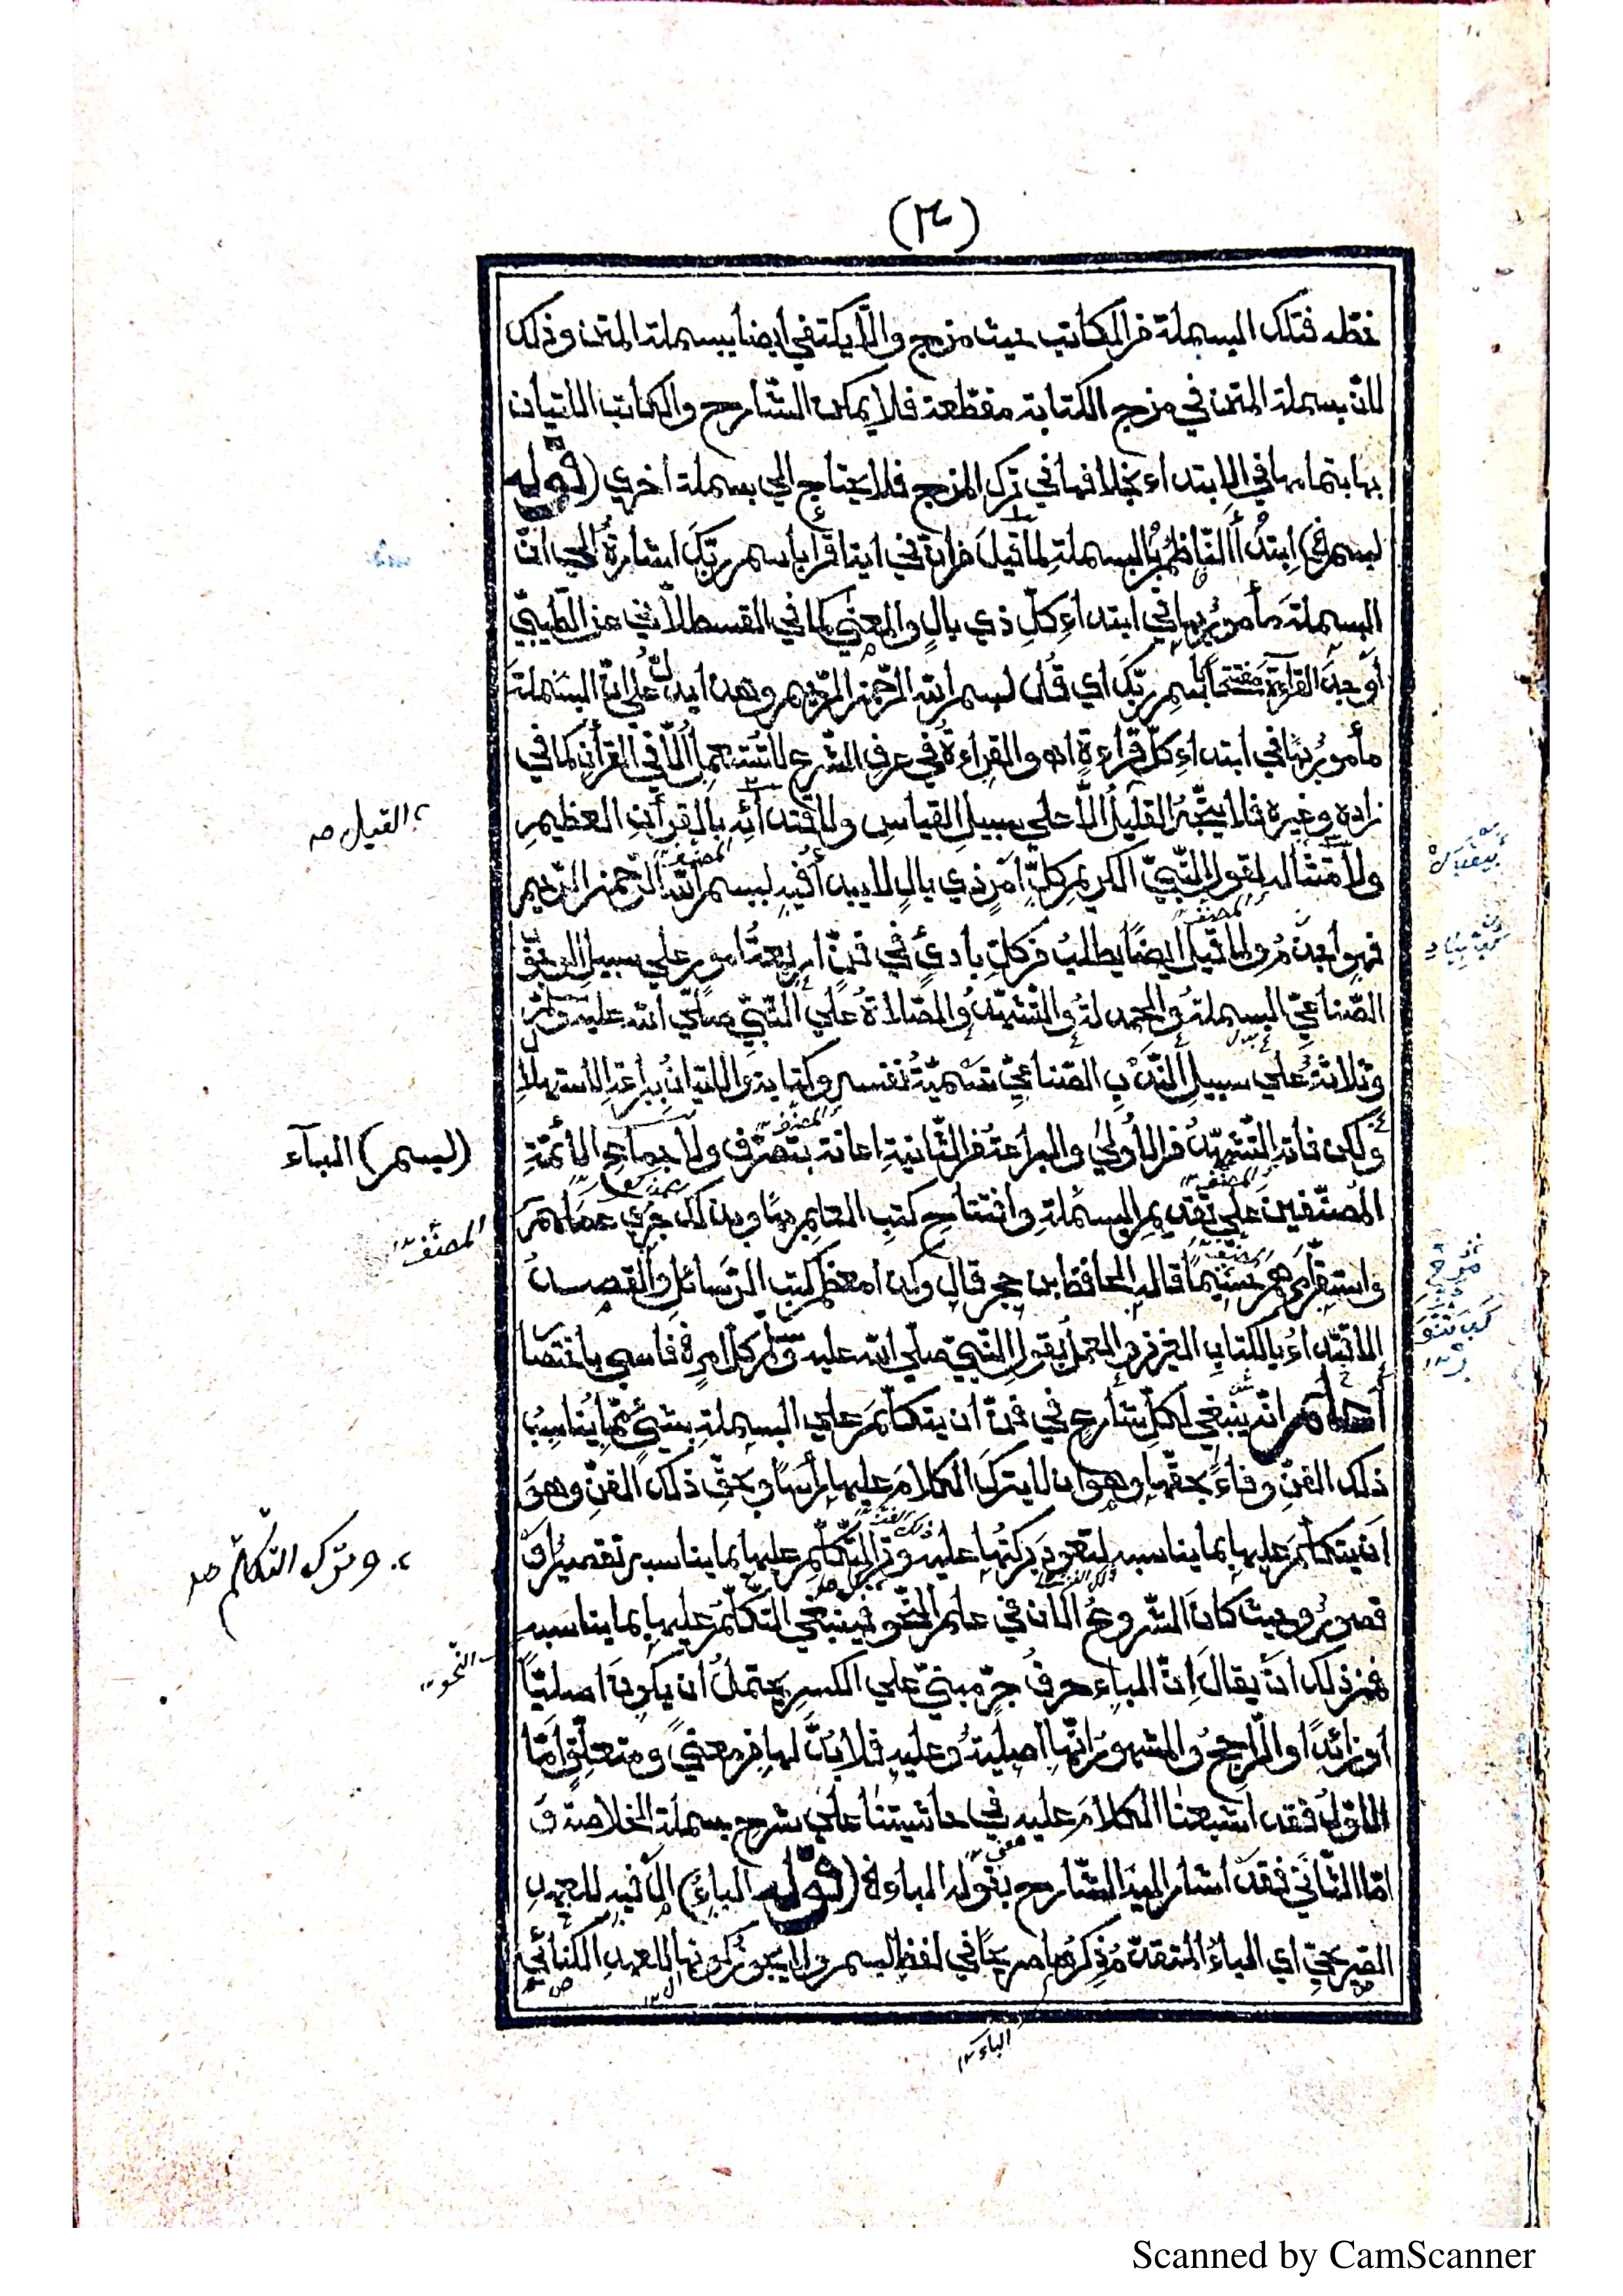 (٣)
خطه فتلك البسملة من الكاتب حيث مزج والّا يكتفي أيضا ببسملة المتن وذلك
لانّ بسملة المتن في مزج الكتابة مقطّعة فلا يمكن الشّارح والكاتب الاتيان
بها بتمامها في الابتداء بخلافها في ترك المزج فلا يحتاج الي بسملة اخري (قوله
بسم الخ) ابتدأ النّاظم بالبسملة لما قيل من انّ في اية اقرأ باسم ربّك اشارة الي انّ
البسملة مأمور بها في ابتداء كلّ ذي بال والمعني كما في القسطلّاني عن الطّيبيّ
أوجد القراءة مفتتحا باسم ربّك اي قل بسم الله الرّحمن الرّحيم وهذا يدلّ علي انّ البسملة
مأمور بها في ابتداء كلّ قراءة اه والقراءة في عرف الشّرع لا تستعمل الّا في القرأن كما في
زاده وغيره فلا يتّجه القليل الّا علي سبيل القياس ولاقتدائه بالقرأن العظيم
ولامتثاله لقول النّبيّ الكريم كلّ امر ذي بال لا يبدأ فيه ببسم الله الرّحمن الرّحيم
فهو اجذم ولما قيل ايضا يطلب من كلّ بادئ في فنّ اربعة امور علي سبيل
الصّناعيّ البسملة والحمدلة والتّشهّد والصّلاة علي النّبيّ صلّي الله عليه وسلّم
وثلاثة علي سبيل النّدب الصّناعيّ تسمية نفسه وكتابه والاتيان ببراعة الاستهلال
ولكن فاته التّشهّد من الاولي والبراعة من الثّانية اعانة بتصرّف ولاجماع الائمّة
المصنّفين علي تقديم البسملة وافتتاح كتب العلم بها وبذلك جري عملهم
واستقرّ امرهم قاله الحافظ ابن حجر قال وكذا معظم كتب الرّسائل والقصد
الاقتداء بالكتاب العزيز والعمل بقول النّبيّ صلّي الله عليه وسلّم كلّ امر فاسي باختصار
اعلم انّه ينبغي لكلّ شارع في فنّ ان يتكلّم علي البسملة بشيئ ممّا يناسب
ذلك الفنّ وفاء بحقّها وهو ان لا يترك الكلام عليها رأسا وبحقّ ذلك الفنّ وهو
ان يتكلّم عليها بما يناسبه لتعود بركتها عليه وترك التّكلّم عليها بما يناسبه تقصير او
قصور وحيث كان الشّروع الان في علم النّحو فينبغي التّكلّم عليها بما يناسبه
فمن ذلك ان يقال انّ الباء حرف جرّ مبنيّ علي الكسر يحتمل ان يكون اصليّا
او زائدا والرّاجح والمشهور انّها اصلية وعليه فلا بدّ لها من معني ومتعلّق امّا
الاوّل فقد اشبعنا الكلام عليه في حاشيتنا علي شرح بسملة الخلاصة و
امّا الثّاني فقد اشار اليه الشّارح بقوله الباء الخ (قوله الباء) ال فيه للعهد
الصّريحيّ اي الباء المتقدّم ذكرها صريحا في لفظ بسم ولا يجوز كونها للعهد الكنائيّ
القيل صه
(بسم) الباء
المصنّف
وترك التّكلّم صه
النّحو
الباء
Scanned by CamScanner